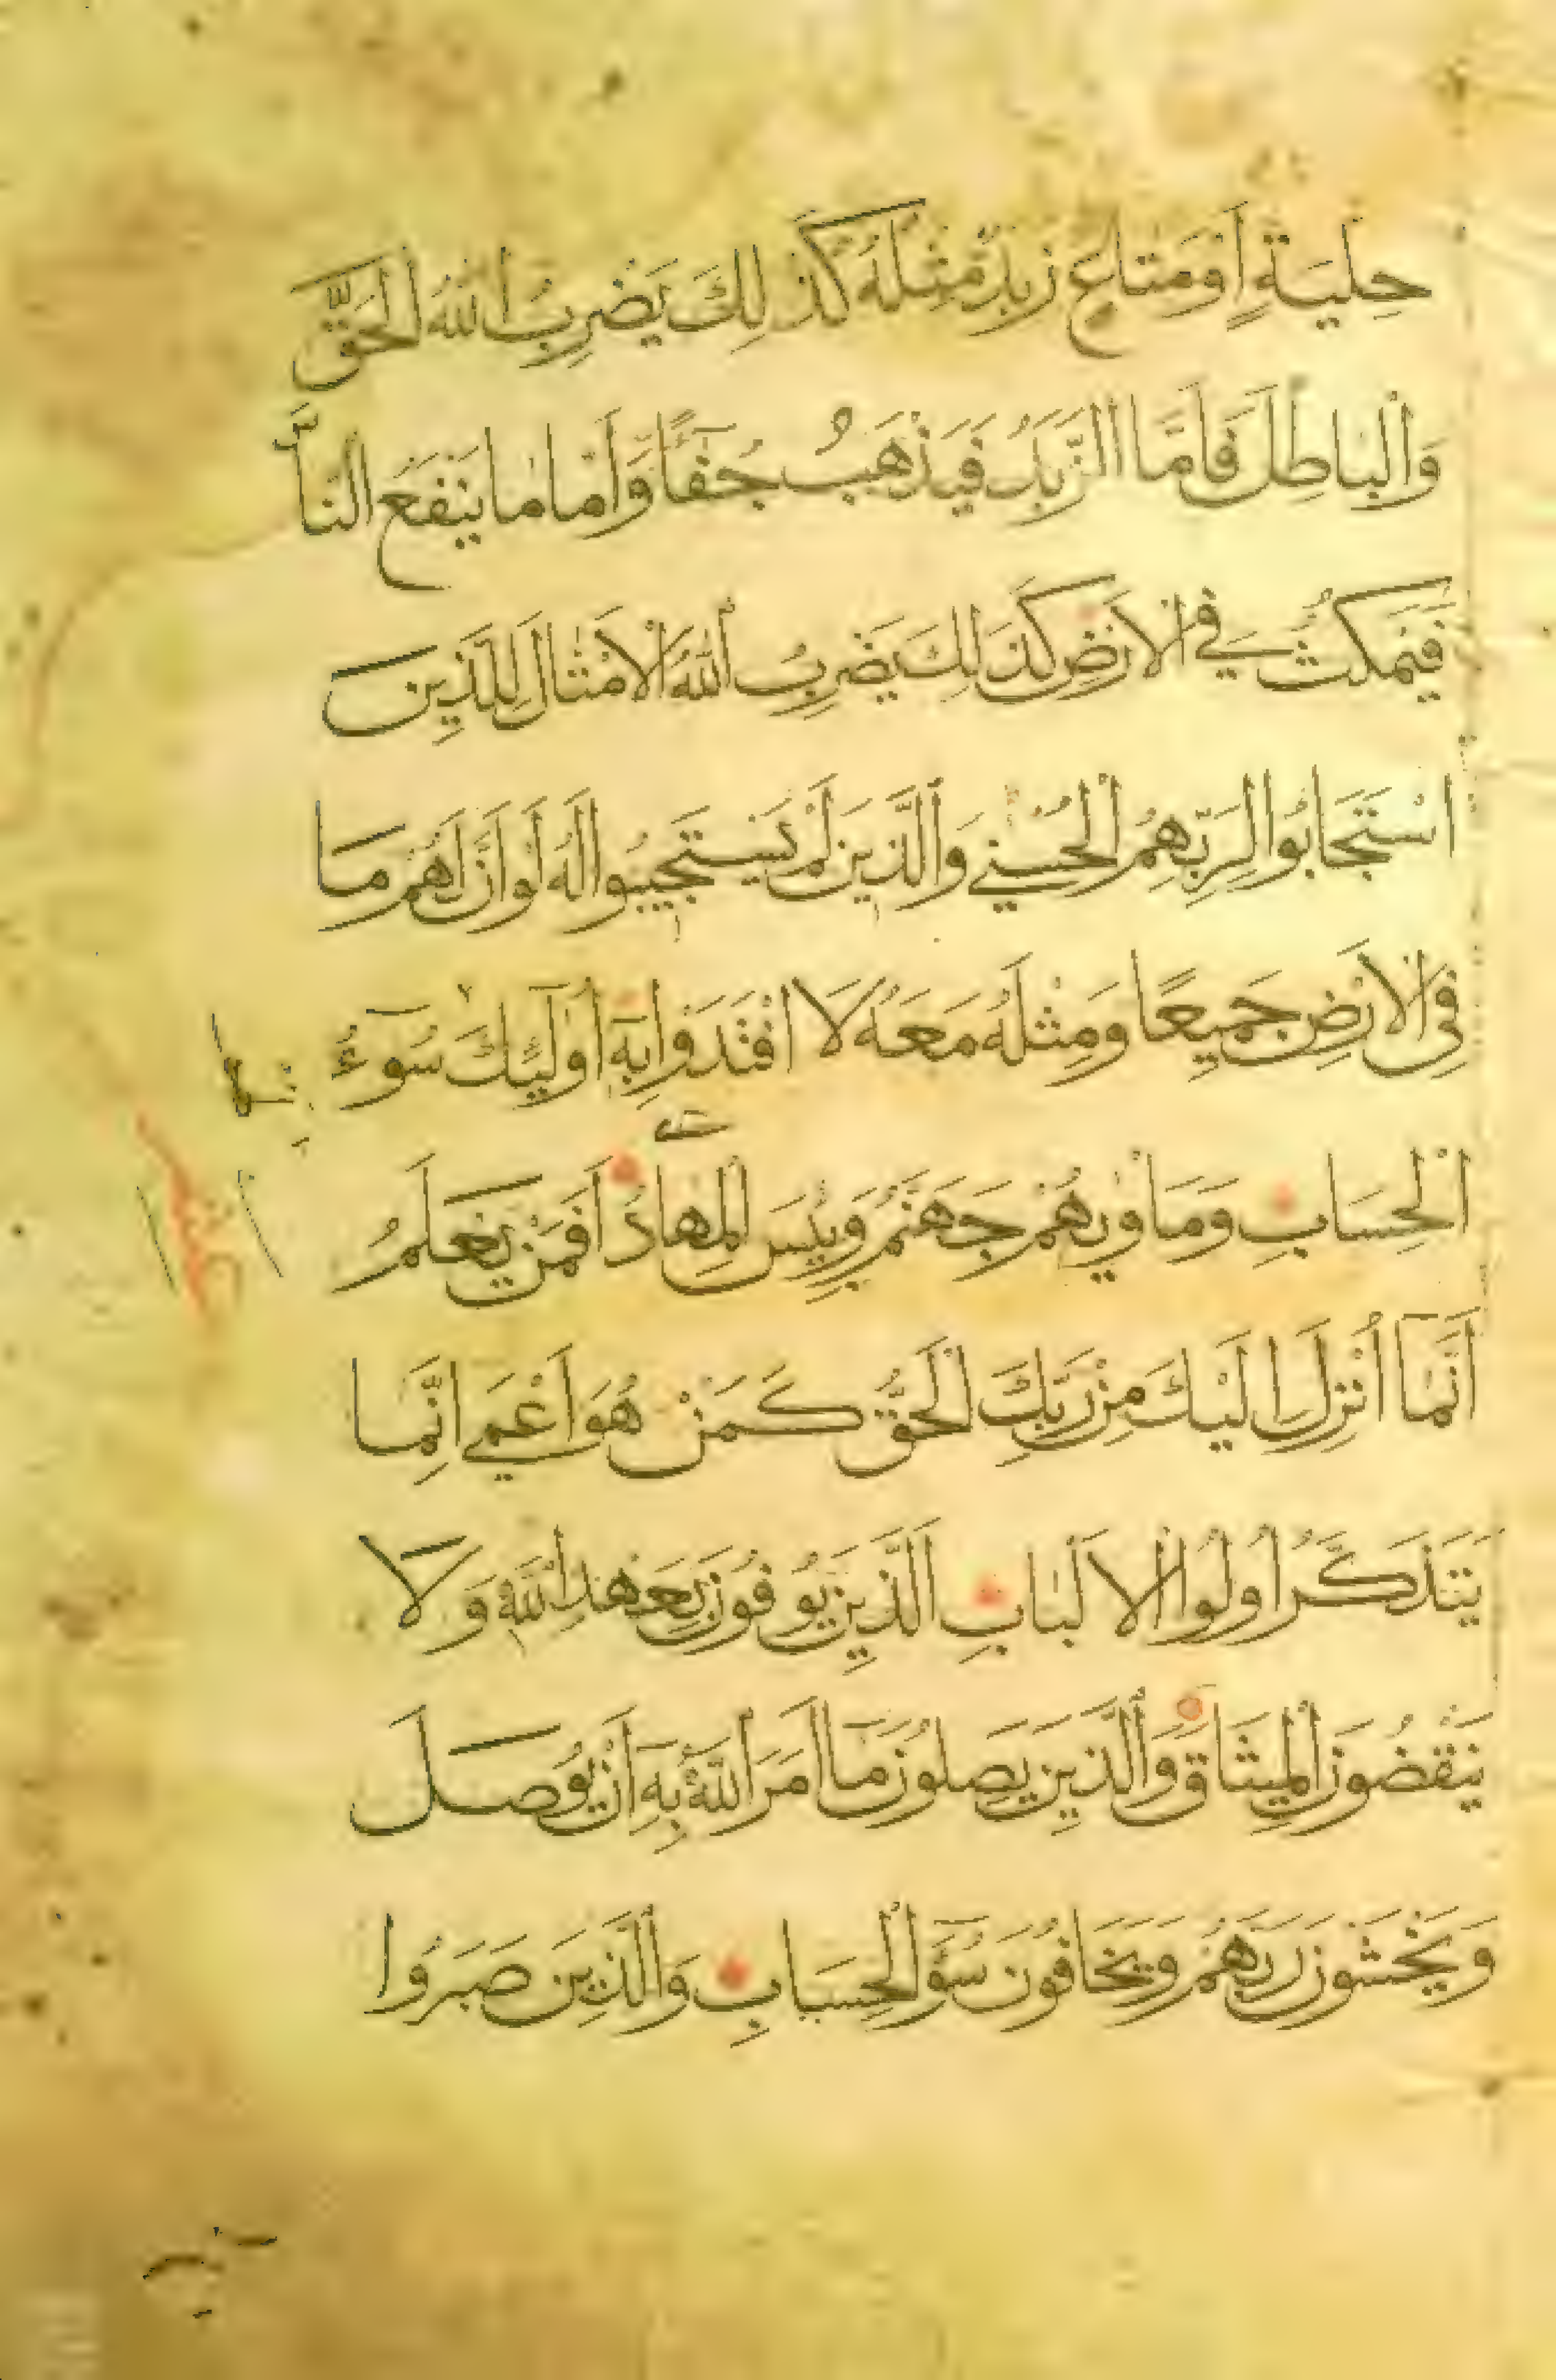 حِلْيَةٍ اَوْ مَتَاعٍ زَبَدٌ مِثْلُهُ كَذٰلِكَ يَضْرِبُ اللّٰهُ الْحَقَّ
وَالْبَاطِلَ فَاَمَّا الزَّبَدُ فَيَذْهَبُ جُفَآءً وَاَمَّا مَا يَنْفَعُ النَّاسَ
فَيَمْكُثُ فِي الْاَرْضِ كَذٰلِكَ يَضْرِبُ اللّٰهُ الْاَمْثَالَ لِلَّذِينَ
اسْتَجَابُوا لِرَبِّهِمُ الْحُسْنٰي وَالَّذِينَ لَمْ يَسْتَجِيبُوا لَهُ لَوْ اَنَّ لَهُمْ مَا
فِي الْاَرْضِ جَمِيعًا وَمِثْلَهُ مَعَهُ لَا افْتَدَوْا بِهِ اُولٰٓئِكَ لَهُمْ سُوٓءُ
الْحِسَابِ وَمَاْوٰيهُمْ جَهَنَّمُ وَبِئْسَ الْمِهَادُ اَفَمَنْ يَعْلَمُ
اَنَّمَآ اُنْزِلَ اِلَيْكَ مِنْ رَبِّكَ الْحَقُّ كَمَنْ هُوَ اَعْمٰي اِنَّمَا
يَتَذَكَّرُ اُولُوا الْاَلْبَابِ اَلَّذِينَ يُوفُونَ بِعَهْدِ اللّٰهِ وَلَا
يَنْقُضُونَ الْمِيثَاقَ وَالَّذِينَ يَصِلُونَ مَآ اَمَرَ اللّٰهُ بِهِ اَنْ يُوصَلَ
وَيَخْشَوْنَ رَبَّهُمْ وَيَخَافُونَ سُوٓءَ الْحِسَابِ وَالَّذِينَ صَبَرُوا